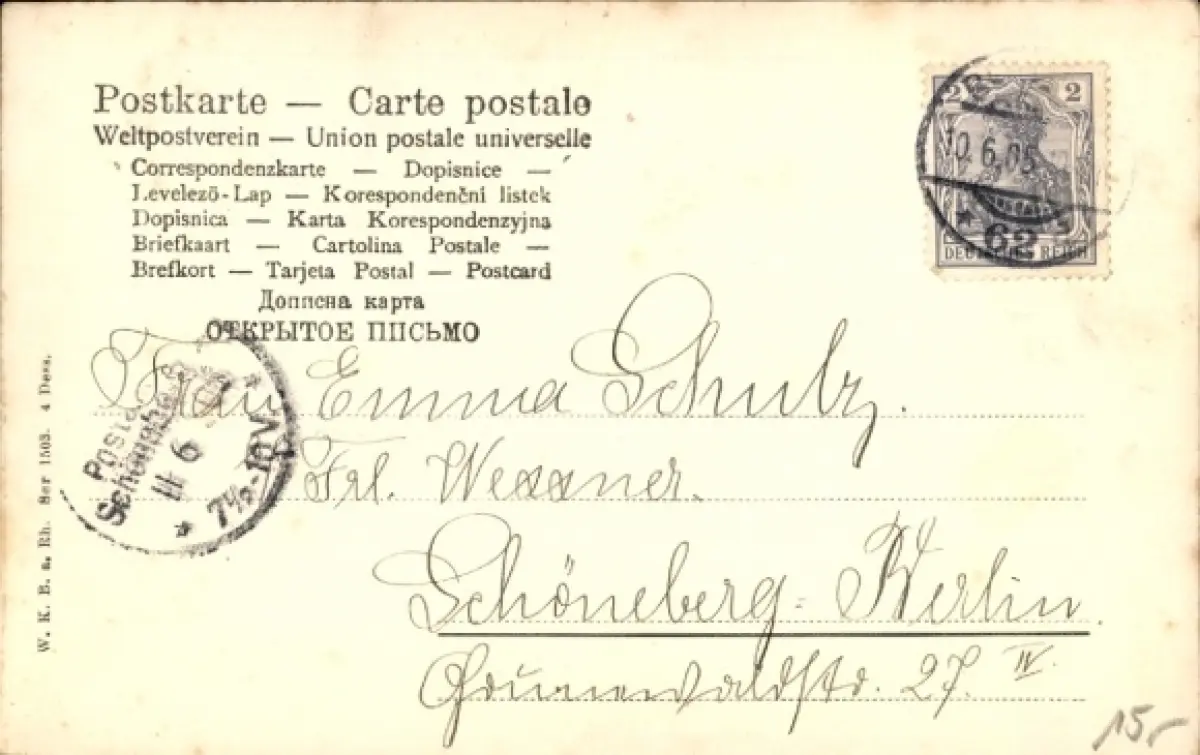 Postkarte — Carte postale
Weltpostverein — Union postale universelle
Correspondenzkarte — Dopisnice —
Levelezö-Lap — Korespondenční listek
Dopisnica — Karta Korespondenzyjna
Briefkaart — Cartolina Postale —
Brefkort — Tarjeta Postal — Postcard
Доппсна карта
ОТКРЫТОЕ ППСЬМО
2 2
10.6.05
62
DEUTSCHES REICH
Frau Emma Schulz.
Frl. Wexxner.
Schöneberg-Berlin
Grunewaldstr. 27. IV.
11 6
7½-10V.
W. K. B. a. Rh. Ser 1503. 4 Dess.
15